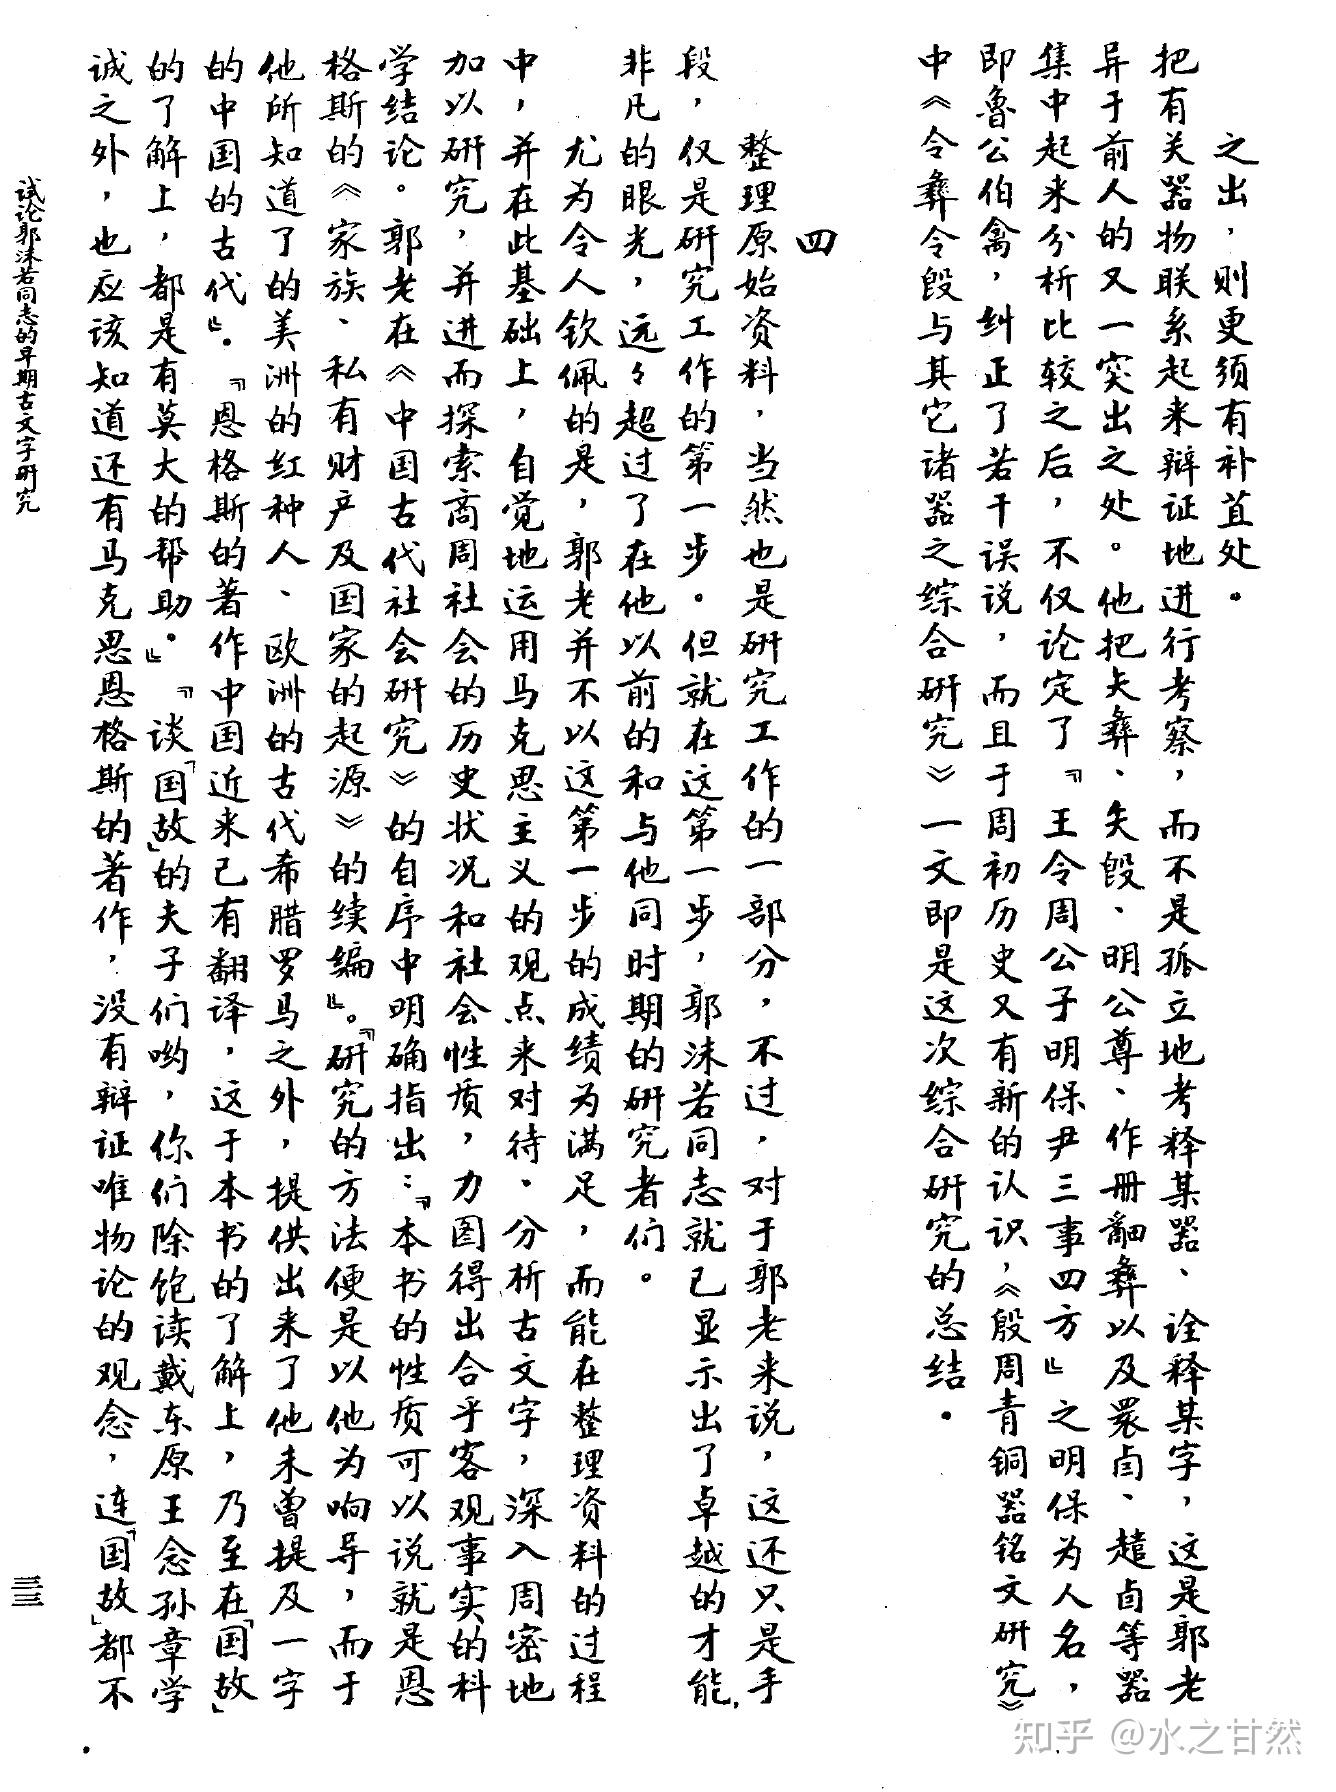 之出，则更须有补苴处。
把有关器物联系起来辩证地进行考察，而不是孤立地考释某器、诠释某字，这是郭老
异于前人的又一突出之处。他把矢彝、矢𣪘、明公尊、作册䰜彝以及睘卣、趞卣等器
集中起来分析比较之后，不仅论定了『王令周公子明保尹三事四方』之明保为人名，
即鲁公伯禽，纠正了若干误说，而且于周初历史又有新的认识，《殷周青铜器铭文研究》
中《令彝令𣪘与其它诸器之综合研究》一文即是这次综合研究的总结。
四
整理原始资料，当然也是研究工作的一部分，不过，对于郭老来说，这还只是手
段，仅是研究工作的第一步。但就在这第一步，郭沫若同志就已显示出了卓越的才能，
非凡的眼光，远々超过了在他以前的和与他同时期的研究者们。
尤为令人钦佩的是，郭老并不以这第一步的成绩为满足，而能在整理资料的过程
中，并在此基础上，自觉地运用马克思主义的观点来对待、分析古文字，深入周密地
加以研究，并进而探索商周社会的历史状况和社会性质，力图得出合乎客观事实的科
学结论。郭老在《中国古代社会研究》的自序中明确指出：『本书的性质可以说就是恩
格斯的《家族、私有财产及国家的起源》的续编』。『研究的方法便是以他为响导，而于
他所知道了的美洲的红种人、欧洲的古代希腊罗马之外，提供出来了他未曾提及一字
的中国的古代』。『恩格斯的著作中国近来已有翻译，这于本书的了解上，乃至在「国故」
的了解上，都是有莫大的帮助。』『谈「国故」的夫子们哟，你们除饱读戴东原王念孙章学
诚之外，也应该知道还有马克思恩格斯的著作，没有辩证唯物论的观念，连「国故」都不
试论郭沫若同志的早期古文字研究
三三
知乎 @水之甘然